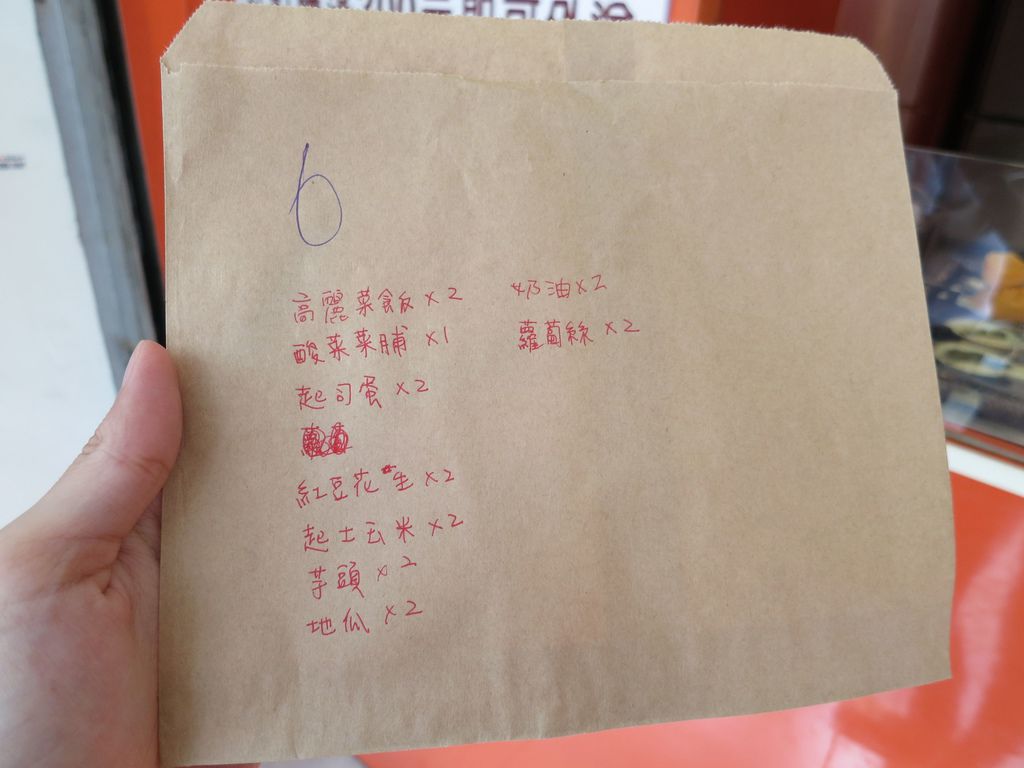 6
高麗菜飯 x2
酸菜菜脯 x1
起司蛋 x2
紅豆花生 x2
起士玉米 x2
芋頭 x2
地瓜 x2
奶油 x2
蘿蔔絲 x2